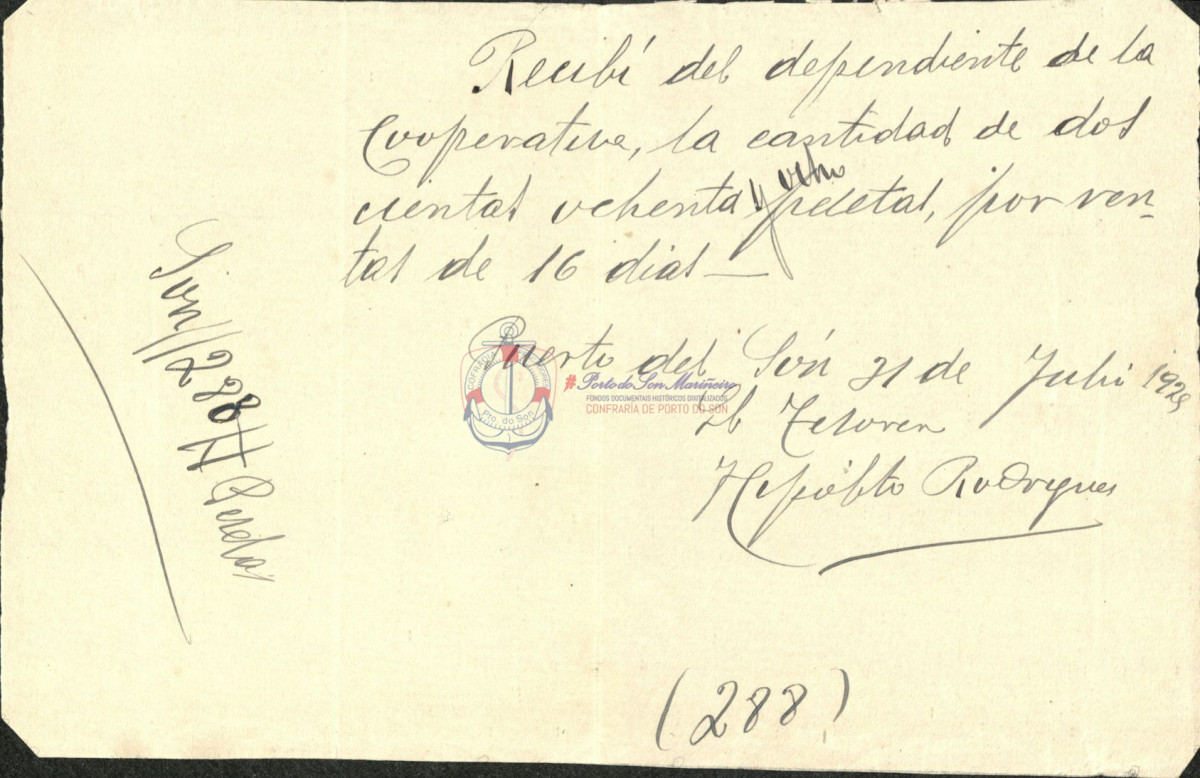 Recibí del dependiente de la
Cooperativa, la cantidad de dos
cientas ochenta y ocho pesetas, por ven-
tas de 16 dias —
Puerto del Són 31 de Julio
El Tesorero
Hipólito Rodrigues
(288)
Son //288// Pesetas
COFRADÍA
Pto. do Son
#Porto do Son Mariñeiro
FONDOS DOCUMENTAIS HISTÓRICOS DIXITALIZADOS
CONFRARÍA DE PORTO DO SON